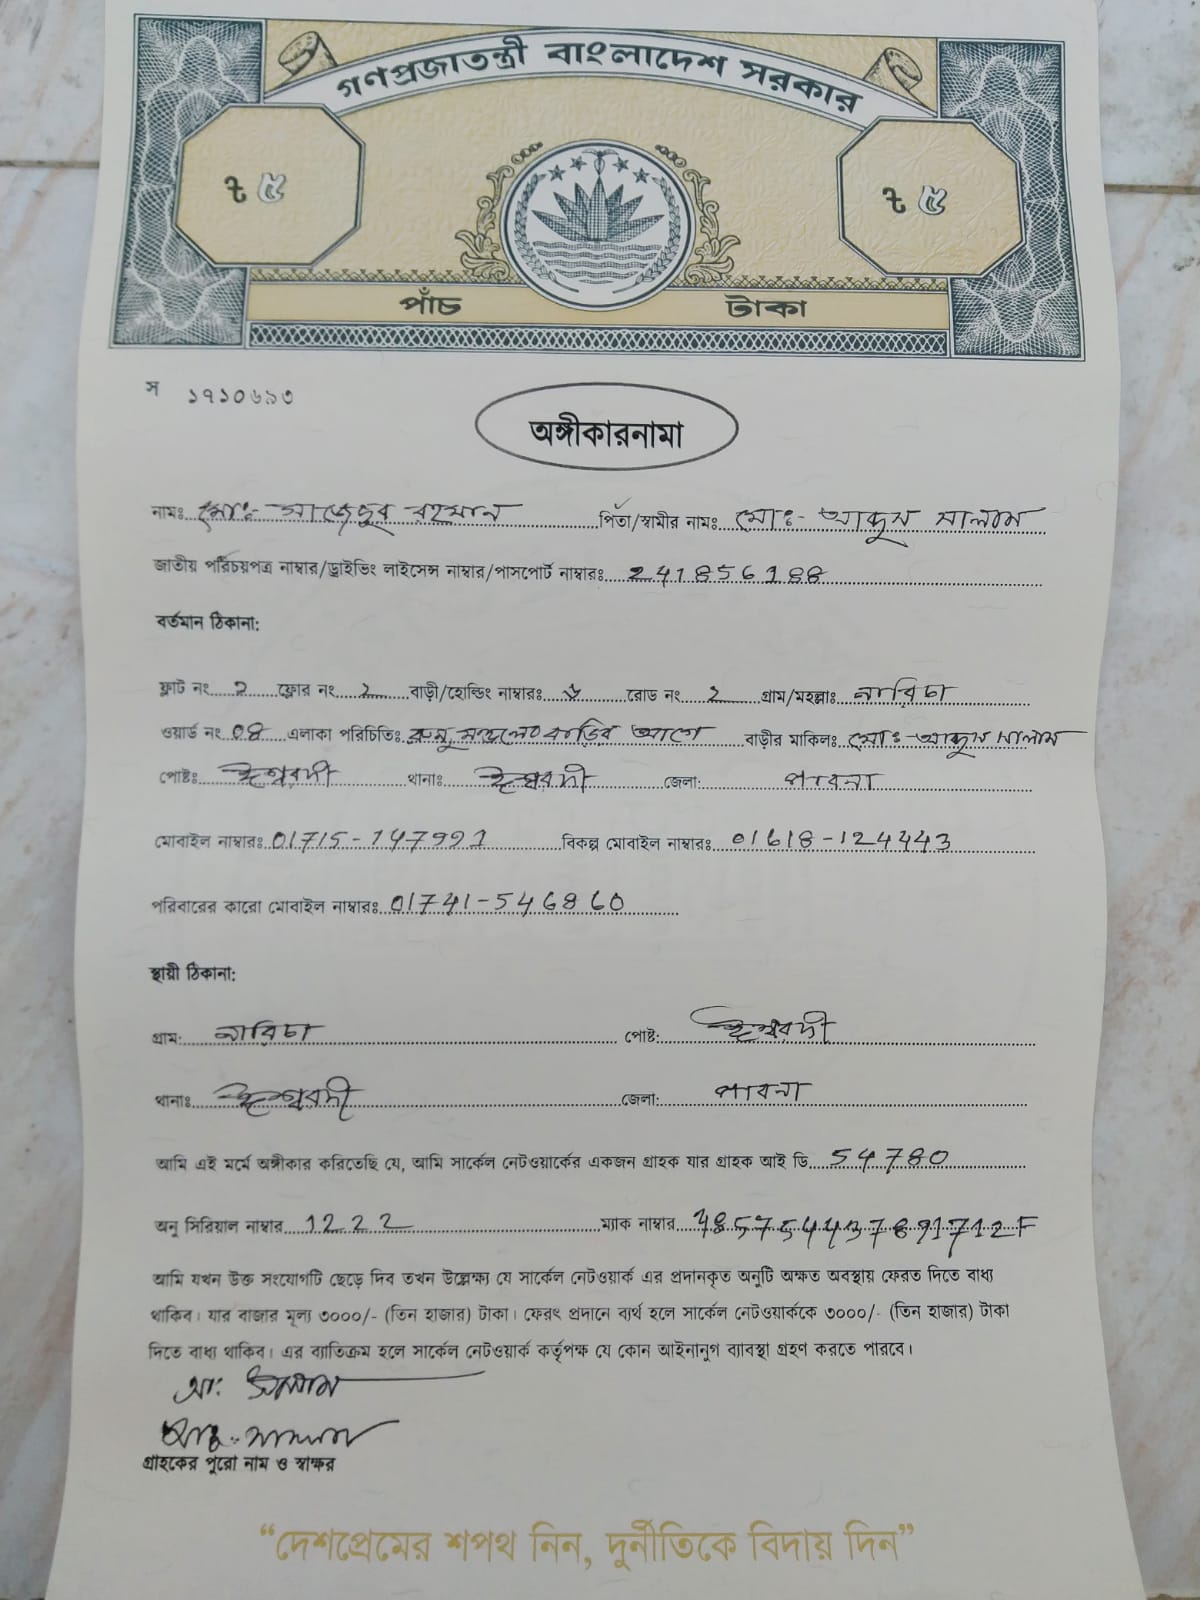 গণপ্রজাতন্ত্রী বাংলাদেশ সরকার
৳ ৫ ৳ ৫
পাঁচ টাকা
স ১৭১০৬৯৩
অঙ্গীকারনামা
নামঃ মোঃ- সাজেদুর রহমান পিতা/স্বামীর নামঃ মোঃ- আব্দুস সালাম
জাতীয় পরিচয়পত্র নাম্বার/ড্রাইভিং লাইসেন্স নাম্বার/পাসপোর্ট নাম্বারঃ 241856188
বর্তমান ঠিকানা:
ফ্লাট নং 2 ফ্লোর নং 2 বাড়ী/হোল্ডিং নাম্বারঃ রোড নং 2 গ্রাম/মহল্লাঃ নারিচা
ওয়ার্ড নং 08 এলাকা পরিচিতিঃ বাড়ির আগে বাড়ীর মাকিলঃ মোঃ-আব্দুস সালাম
পোষ্টঃ ঈশ্বরদী থানাঃ ঈশ্বরদী জেলা: পাবনা
মোবাইল নাম্বারঃ 01715-147991 বিকল্প মোবাইল নাম্বারঃ 01618-124443
পরিবারের কারো মোবাইল নাম্বারঃ 01741-546860
স্থায়ী ঠিকানা:
গ্রাম: নারিচা পোষ্ট: ঈশ্বরদী
থানাঃ ঈশ্বরদী জেলা: পাবনা
আমি এই মর্মে অঙ্গীকার করিতেছি যে, আমি সার্কেল নেটওয়ার্কের একজন গ্রাহক যার গ্রাহক আই ডি 54780
অনু সিরিয়াল নাম্বার 1222 ম্যাক নাম্বার 485754437891712F
আমি যখন উক্ত সংযোগটি ছেড়ে দিব তখন উল্লেক্ষ্য যে সার্কেল নেটওয়ার্ক এর প্রদানকৃত অনুটি অক্ষত অবস্থায় ফেরত দিতে বাধ্য
থাকিব। যার বাজার মূল্য ৩০০০/- (তিন হাজার) টাকা। ফেরৎ প্রদানে ব্যর্থ হলে সার্কেল নেটওয়ার্ককে ৩০০০/- (তিন হাজার) টাকা
দিতে বাধ্য থাকিব। এর ব্যাতিক্রম হলে সার্কেল নেটওয়ার্ক কর্তৃপক্ষ যে কোন আইনানুগ ব্যাবস্থা গ্রহণ করতে পারবে।
আঃ সালাম
গ্রাহকের পুরো নাম ও স্বাক্ষর
“দেশপ্রেমের শপথ নিন, দুর্নীতিকে বিদায় দিন”